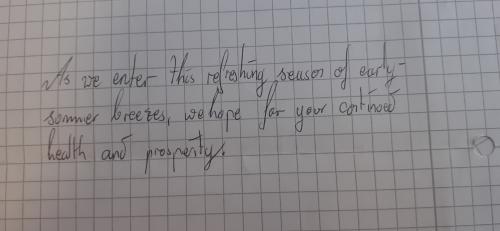 As we enter this refreshing season of early-
sommer breezes, we hope for your continoed
health and prosperity.